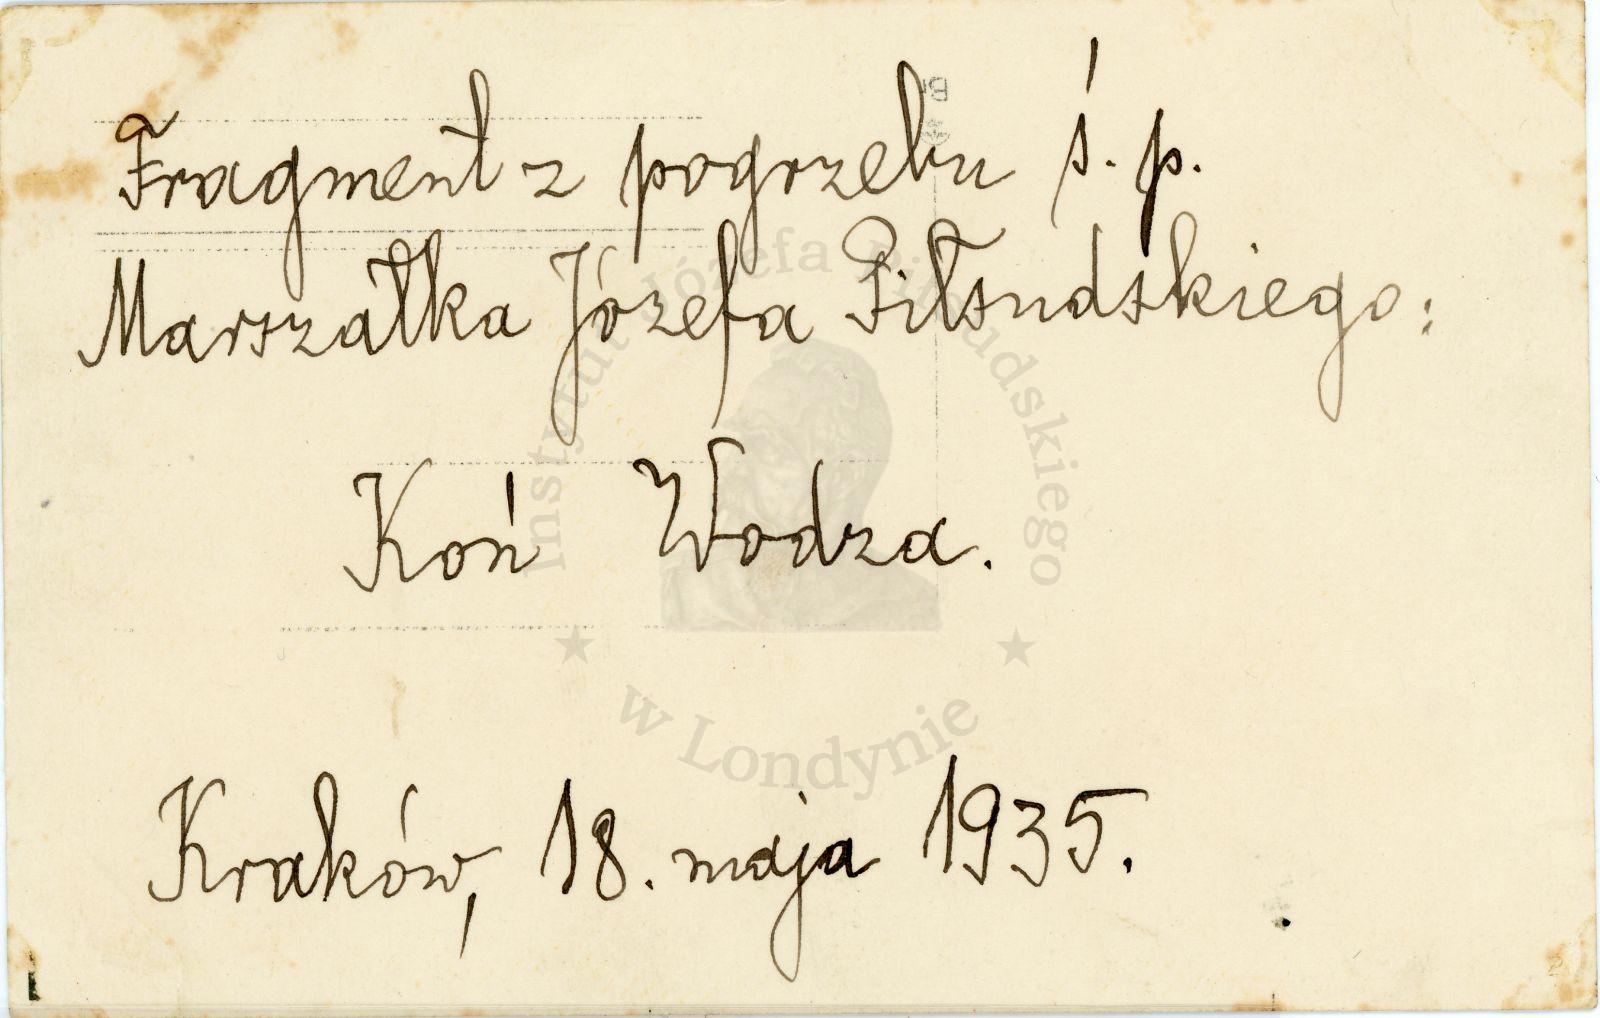 Fragment z pogrzebu ś.p.
Marszałka Józefa Piłsudskiego:
Koń Wodza.
Kraków, 18. maja 1935.
Instytut Józefa Piłsudskiego
w Londynie